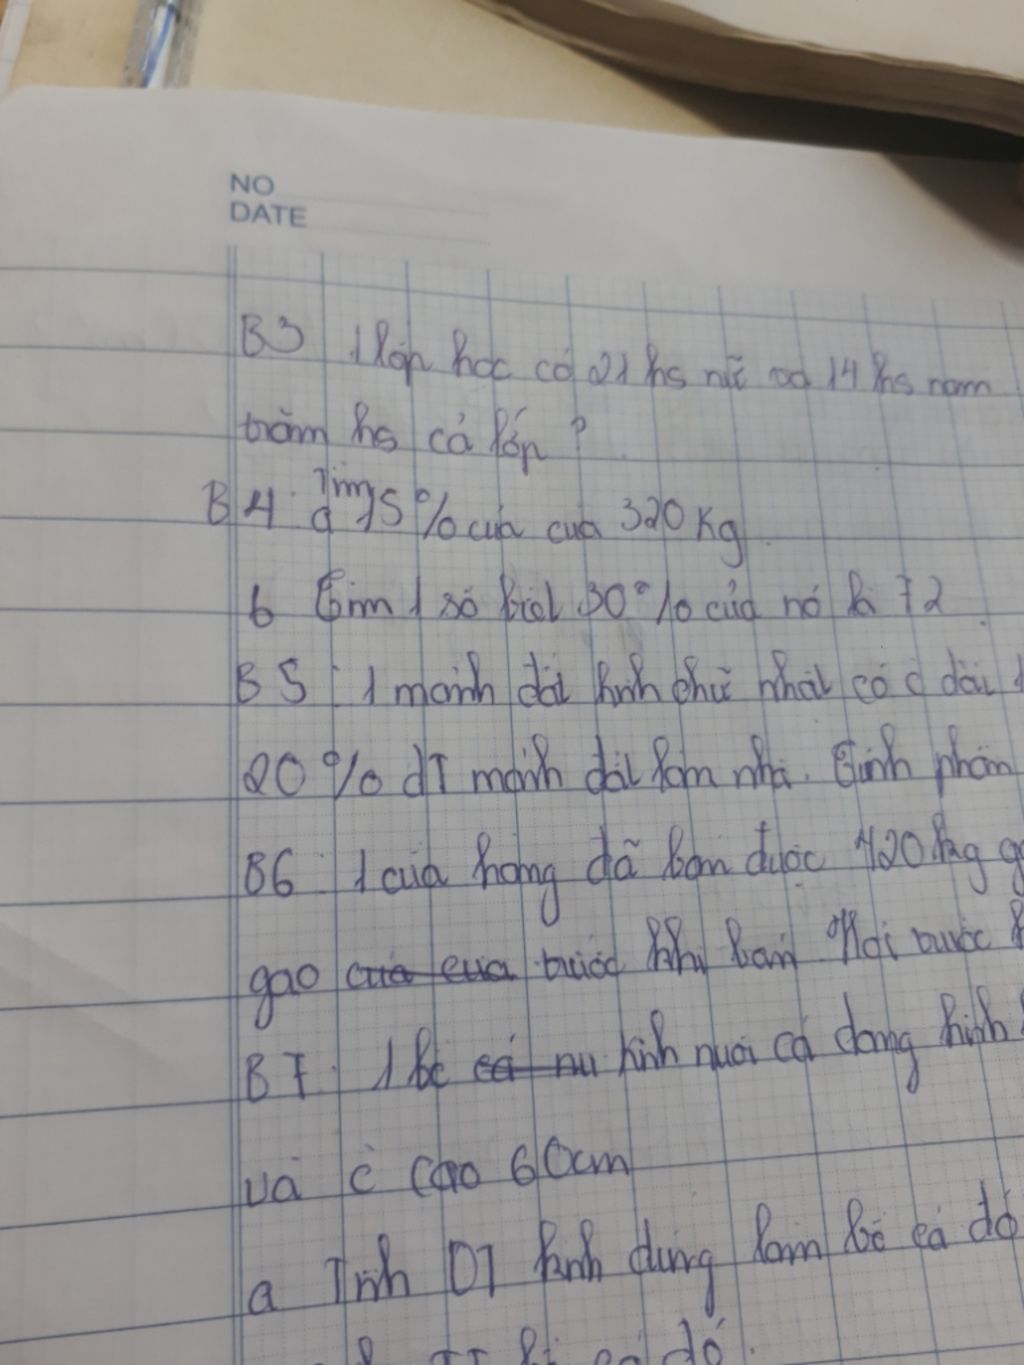 NO
DATE
B3 1 lớp học có 21 hs nữ và 14 hs nam
trăm hs cả lớp ?
B4 : Tìm
a 15 % của của 320 kg
b Tìm 1 số biết 30 % của nó là 72
B5 : 1 mảnh đất hình chữ nhật có c dài
20 % dT mảnh đất làm nhà. Tính phần
B6 : 1 cửa hàng đã bán được 420 kg
gạo của cua trước khi bán. Hỏi trước
B7 : 1 bể cá nu kính nuôi cá dạng hình
và c cao 60cm
a Tính DT kính dùng làm bể cá đó
cá đó.